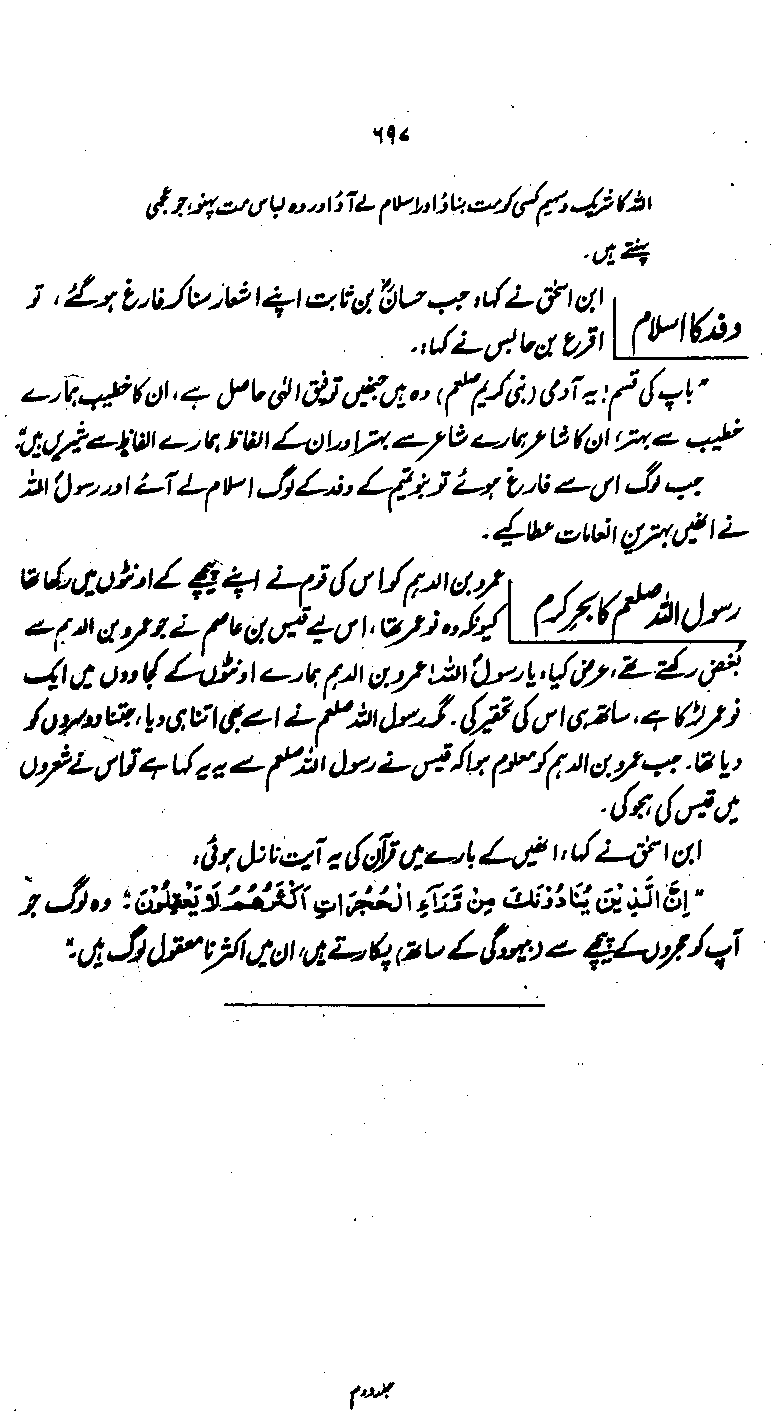 ۶۹۷
اللہ کا شریک و سہیم کسی کو مت بناؤ اور اسلام لے آؤ اور وہ لباس مت پہنو، جو عجمی
پہنتے ہیں۔
وفد کا اسلام
ابن اسحٰق نے کہا، جب حسانؓ بن ثابت اپنے اشعار سنا کر فارغ ہو گئے، تو
اقرع بن حابس نے کہا:۔
"باپ کی قسم! یہ آدمی (نبی کریم صلعم) وہ ہیں جنھیں توفیق الٰہی حاصل ہے، ان کا خطیب ہمارے
خطیب سے بہتر، ان کا شاعر ہمارے شاعر سے بہتر اور ان کے الفاظ ہمارے الفاظ سے شیریں ہیں"
جب لوگ اس سے فارغ ہوئے تو بنو تمیم کے وفد کے لوگ اسلام لے آئے اور رسولؐ اللہ
نے انھیں بہترین انعامات عطا کیے۔
رسول اللہ صلعم کا بحرِ کرم
عمرو بن الدہم کو اس کی قوم نے اپنے پیچھے کے اونٹوں میں رکھا تھا
کیونکہ وہ نو عمر تھا، اس لیے قیس بن عاصم نے جو عمرو بن الدہم سے
بغض رکھتے تھے، عرض کیا، یا رسولؐ اللہ! عمرو بن الدہم ہمارے اونٹوں کے کجاووں میں ایک
نو عمر لڑکا ہے، ساتھ ہی اس کی تحقیر کی۔ مگر رسول اللہ صلعم نے اسے بھی اتنا ہی دیا، جتنا دوسروں کو
دیا تھا۔ جب عمرو بن الدہم کو معلوم ہوا کہ قیس نے رسول اللہ صلعم سے یہ یہ کہا ہے تو اس نے شعروں
میں قیس کی ہجو کی۔
ابن اسحٰق نے کہا، انھیں کے بارے میں قرآن کی یہ آیت نازل ہوئی:
"اِنَّ الَّذِیْنَ یُنَادُوْنَكَ مِنْ وَّرَآءِ الْحُجُرَاتِ اَكْثَرُهُمْ لَا یَعْقِلُوْنَ؛ وہ لوگ جو
آپ کو حجروں کے پیچھے سے (بیہودگی کے ساتھ) پکارتے ہیں، ان میں اکثر نا معقول لوگ ہیں۔"
جلد دوم